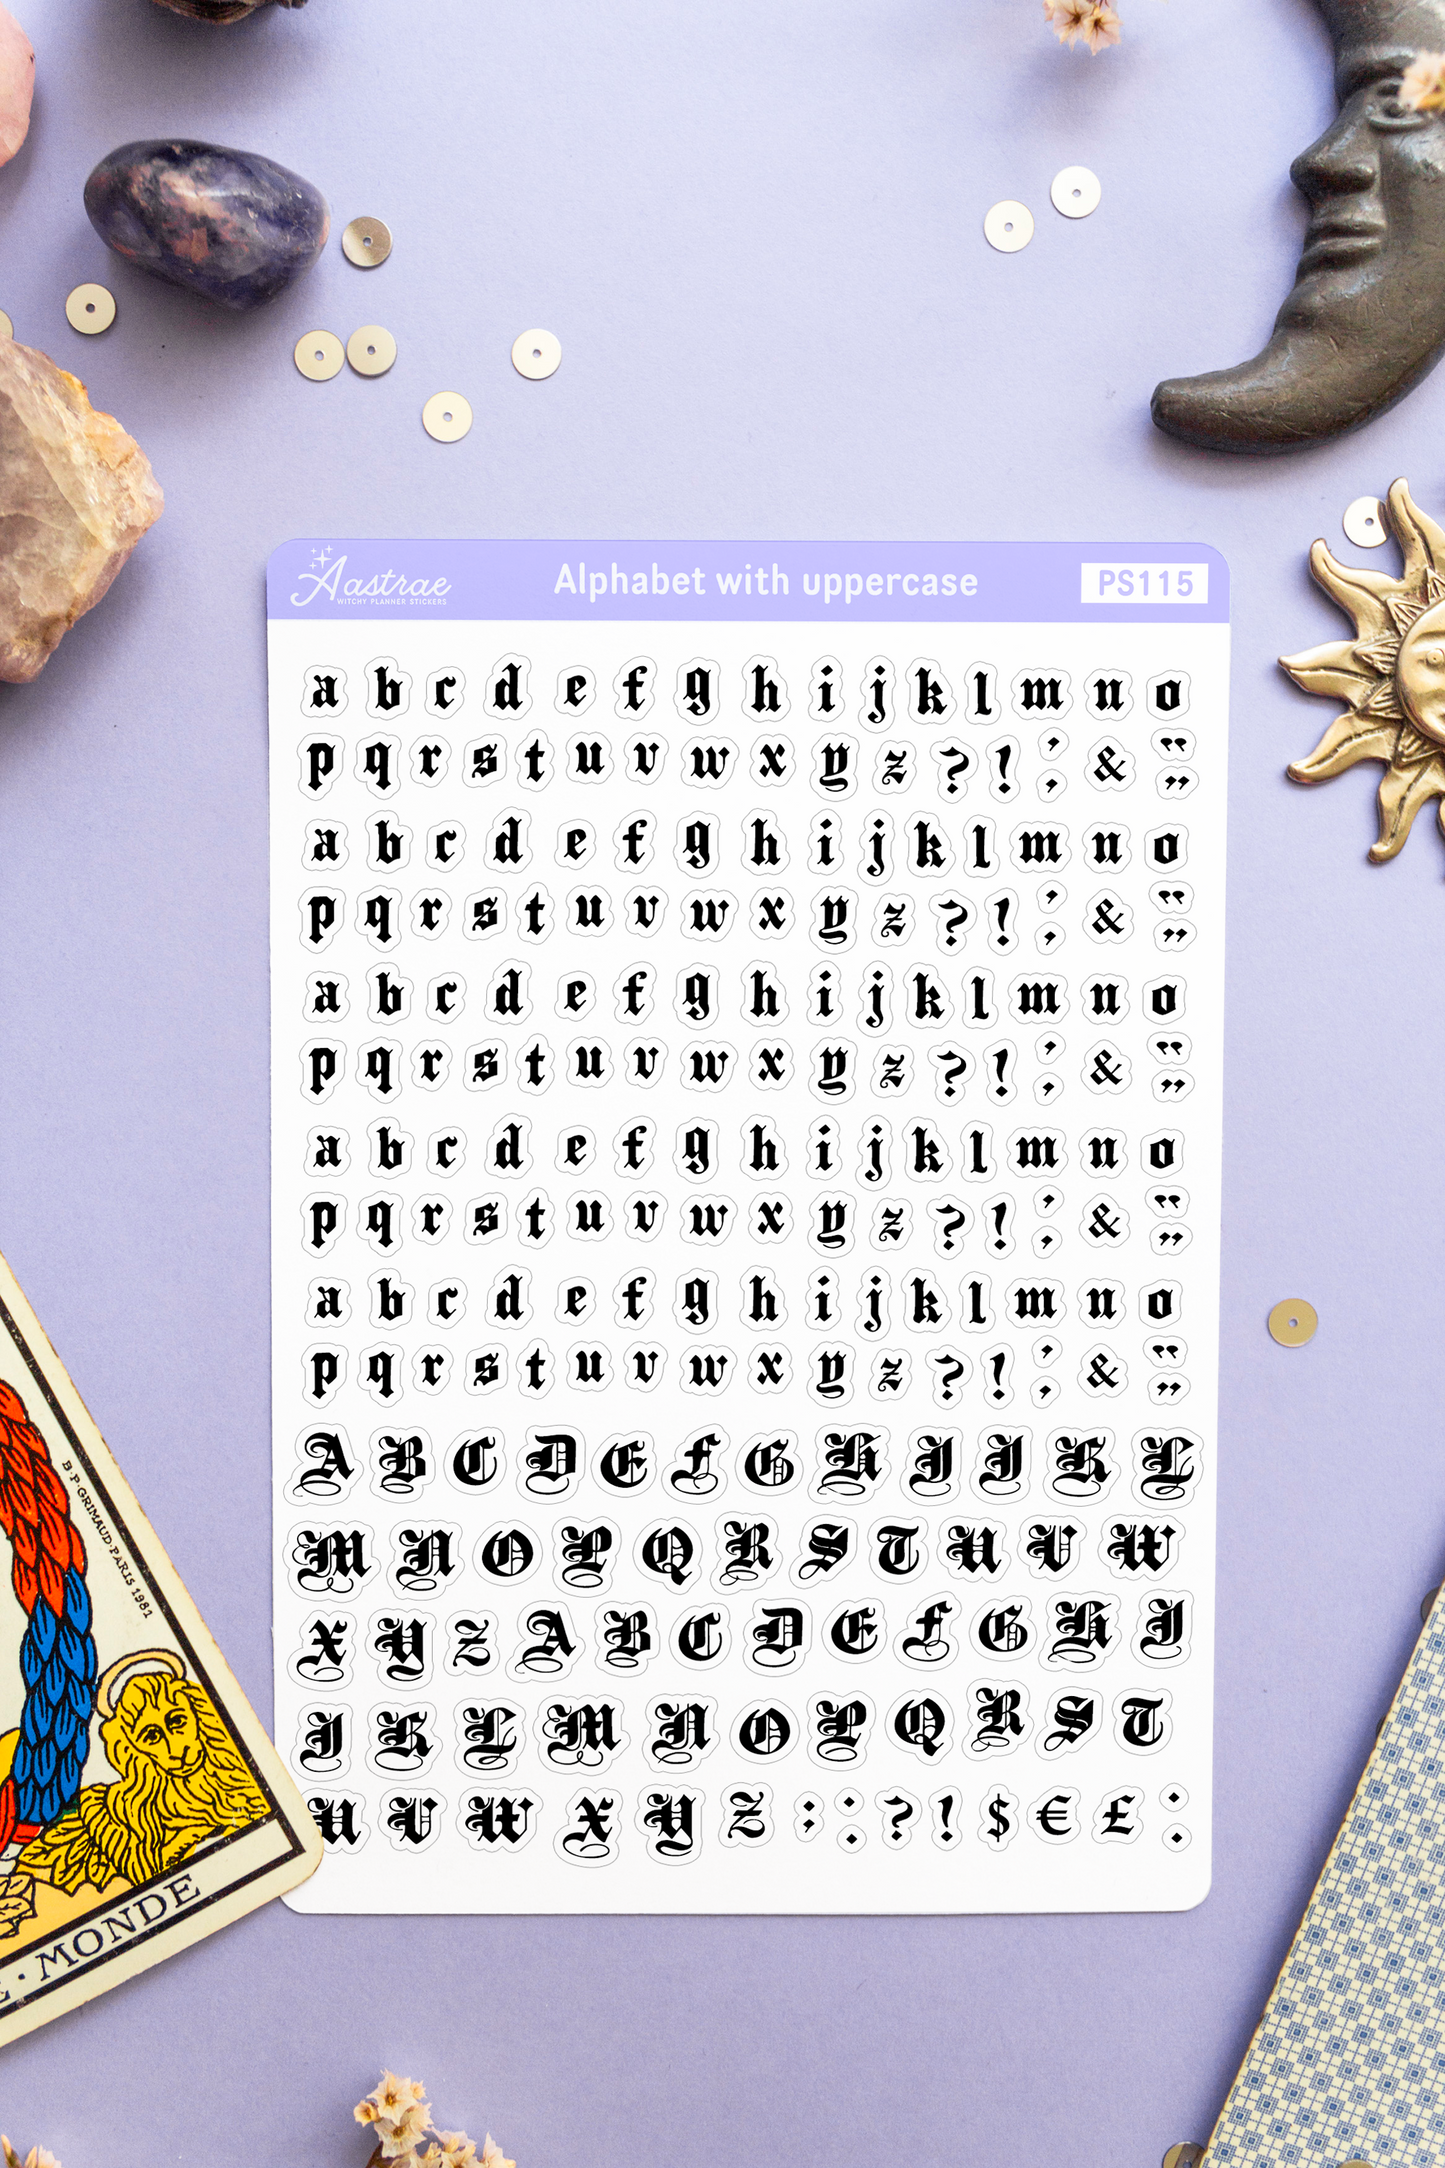 Aastrae
WITCHY PLANNER STICKERS
Alphabet with uppercase
PS115
a b c d e f g h i j k l m n o
p q r s t u v w x y z ? ! ' , & “ ”
a b c d e f g h i j k l m n o
p q r s t u v w x y z ? ! ' , & “ ”
a b c d e f g h i j k l m n o
p q r s t u v w x y z ? ! ' , & “ ”
a b c d e f g h i j k l m n o
p q r s t u v w x y z ? ! ' , & “ ”
a b c d e f g h i j k l m n o
p q r s t u v w x y z ? ! ' , & “ ”
A B C D E F G H I J K L
M N O P Q R S T U V W
X Y Z A B C D E F G H I
J K L M N O P Q R S T
U V W X Y Z ; : ? ! $ € £ :
B·P·GRIMAUD·PARIS 1981
MONDE